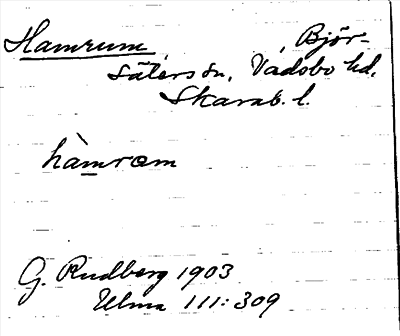 Hamrum, , Björ-
säters sn, Vadsbo hd,
Skarab. l.
hàmrơm
G. Rudberg 1903
Ulma 111:309